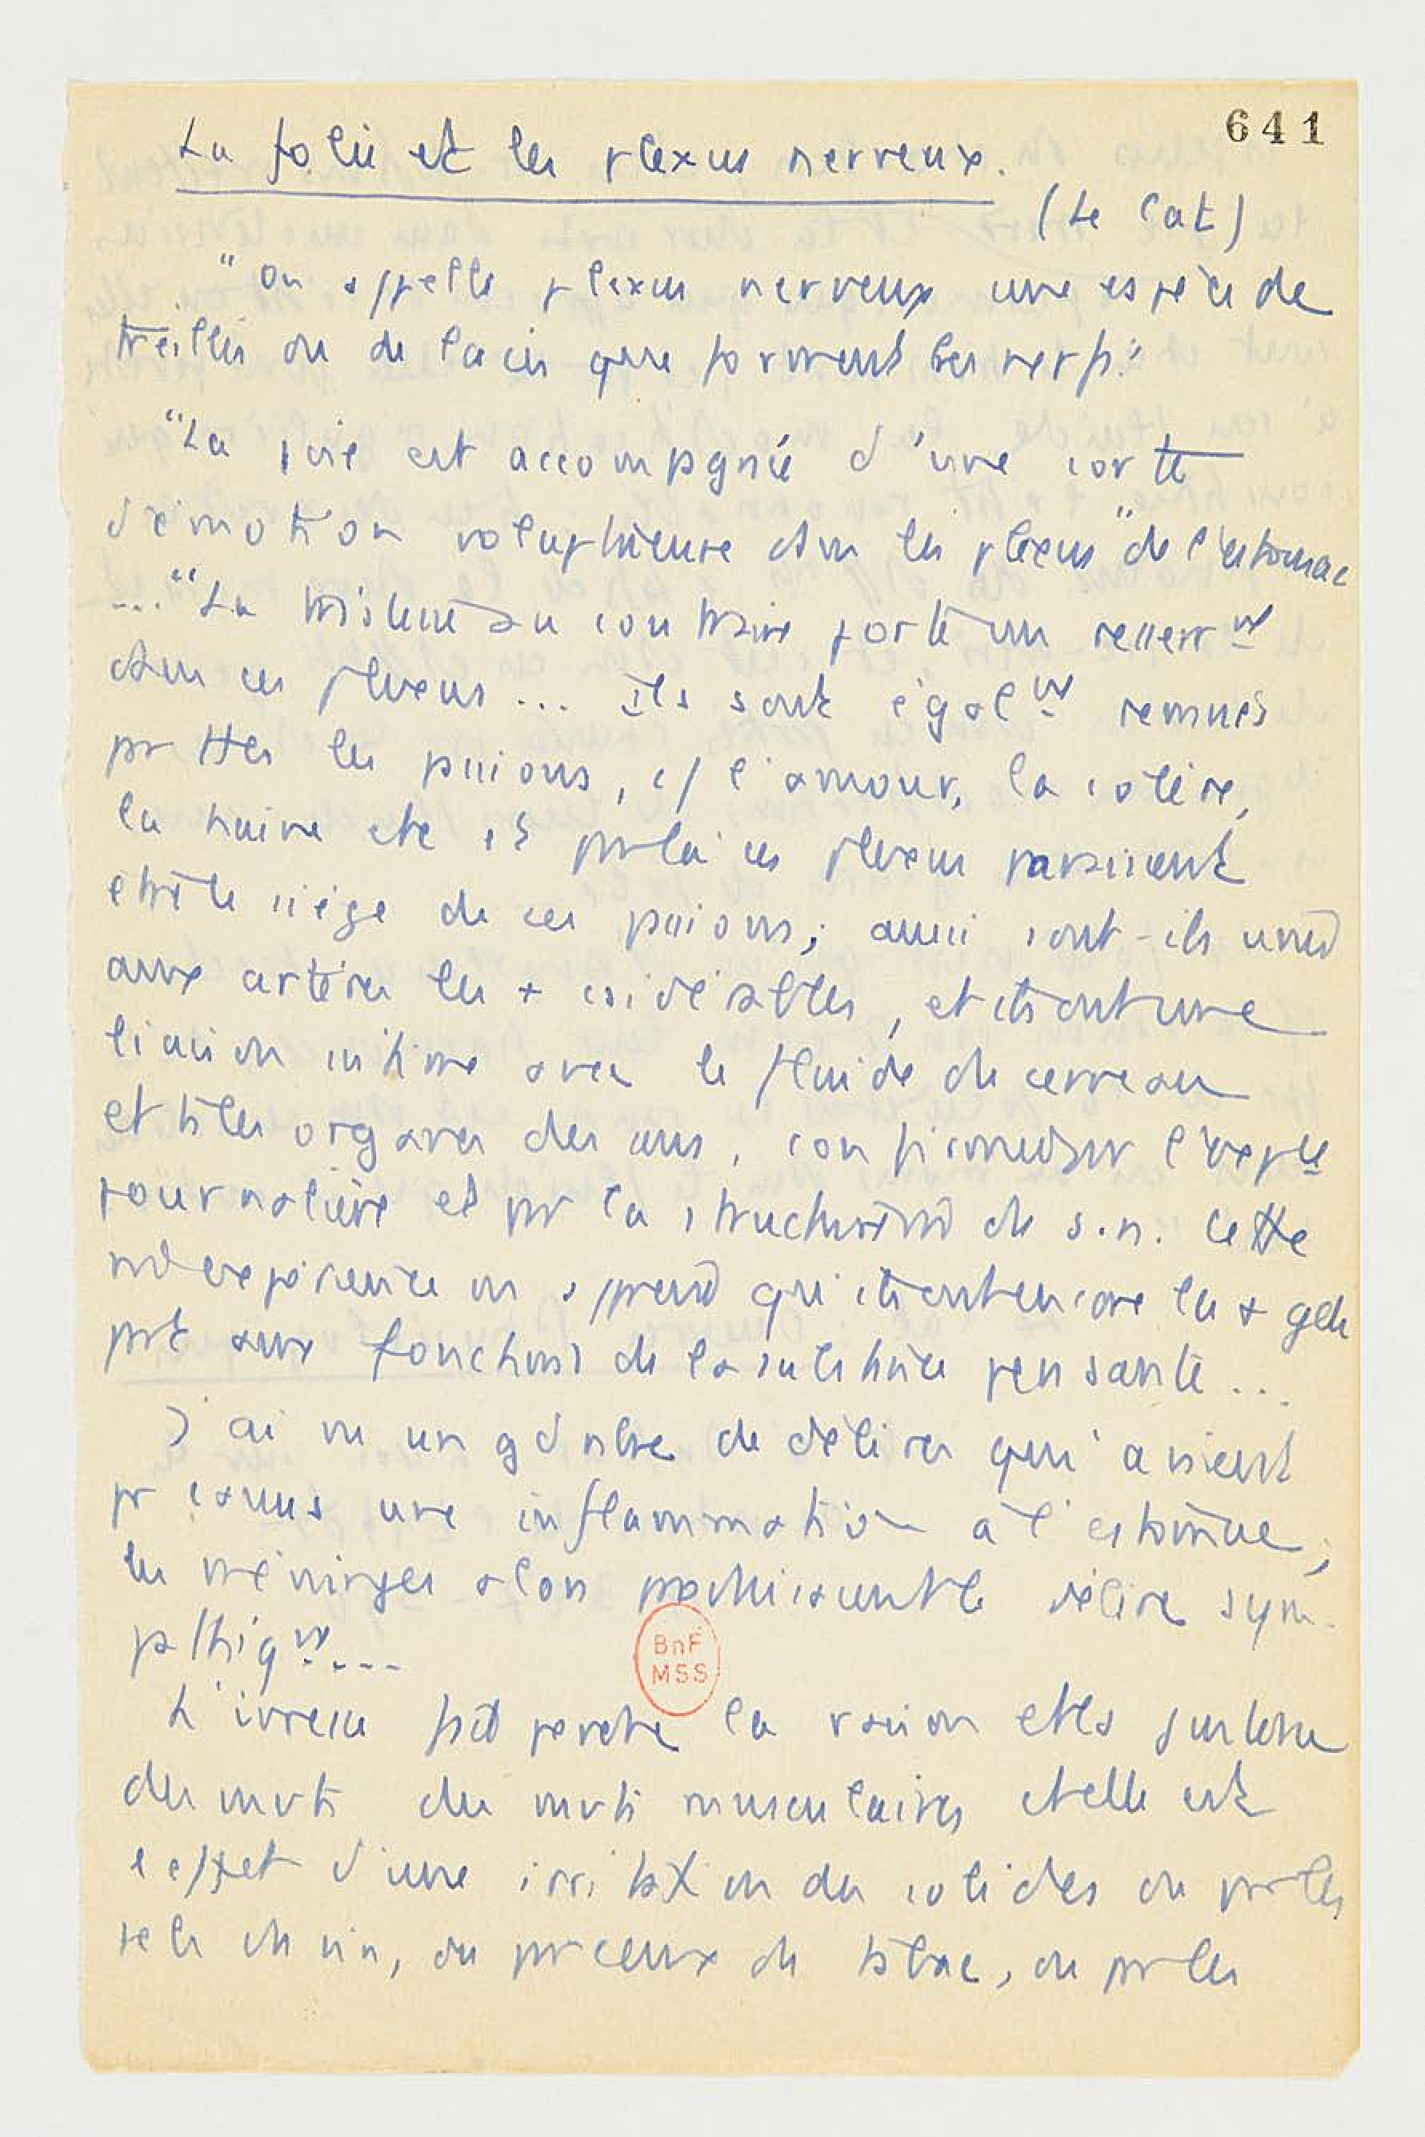 641
La folie et les plexus nerveux.
(Le Cat)
"On appelle plexus nerveux une espèce de
treillis ou de lacis que forment les nerfs."
"La joie est accompagnée d'une sorte
d'émotion voluptueuse dans les plexus" de l'estomac
..."La tristesse au contraire porte un resserrt
dans ces plexus... ils sont égalt remués
par ttes les passions, cf l'amour, la colère,
la haine etc et par là ces plexus paraissent
être le siège de ces passions; aussi sont-ils unis
aux artères les + csidérables, et ils ont une
liaison intime avec le fluide du cerveau
et ts les organes des sens, confirmés par l'expce
journalière et par la structure du s.n. Cette
m expérience ns apprend qu'ils ont encore la + gde
part aux fonctions de la substance pensante...
J'ai vu un gd nbre de délires qui avaient
pr causes une inflammation à l'estomac;
les méninges alors partageaient le délire sym-
pathiqt....
L'ivresse fait perdre la raison et les
des mvts des mvts musculaires et elle est
l'effet d'une irritation des solides ou par les
sels du vin, ou par ceux du tabac, ou par les
BnF
MSS